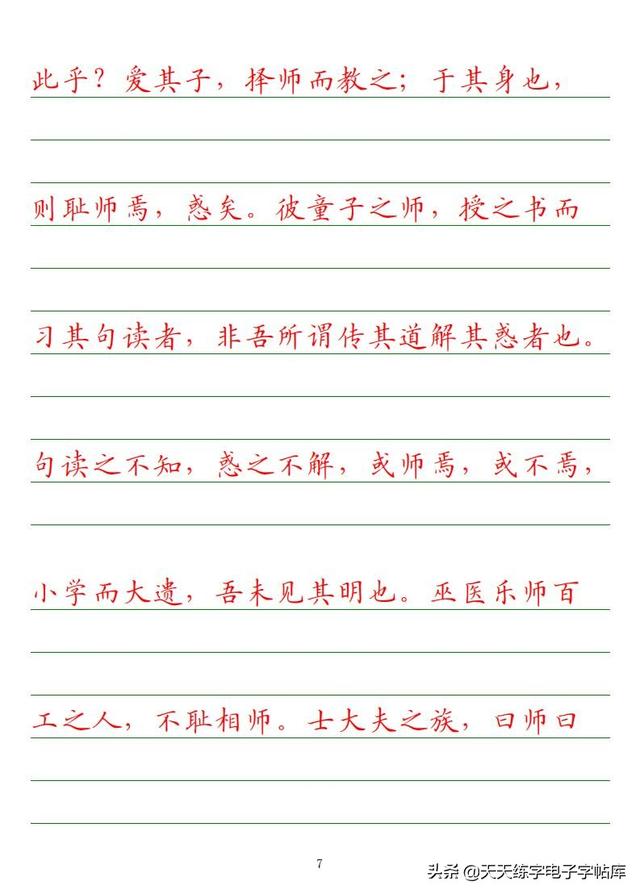 此乎？爱其子，择师而教之；于其身也，
则耻师焉，惑矣。彼童子之师，授之书而
习其句读者，非吾所谓传其道解其惑者也。
句读之不知，惑之不解，或师焉，或不焉，
小学而大遗，吾未见其明也。巫医乐师百
工之人，不耻相师。士大夫之族，曰师曰
7
头条 @天天练字电子字帖库